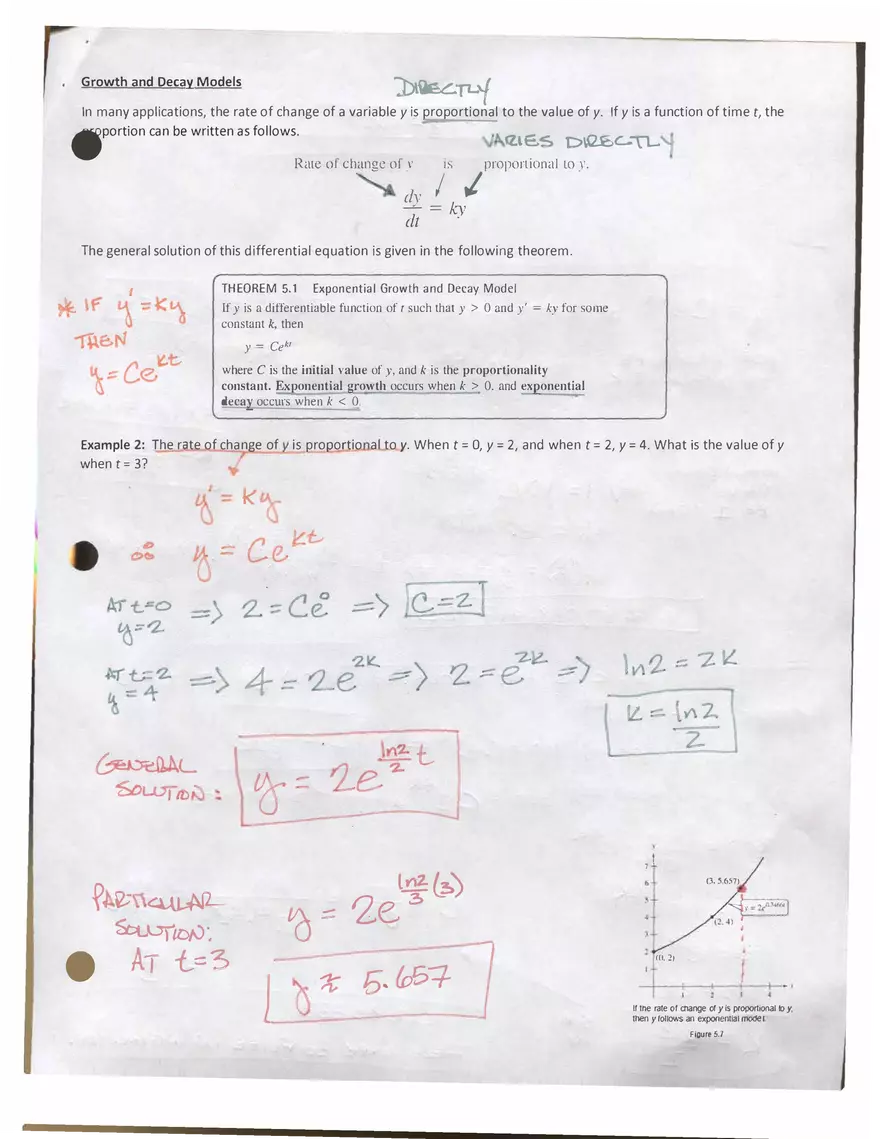 Growth and Decay Models
DIRECTLY
In many applications, the rate of change of a variable y is proportional to the value of y. If y is a function of time t, the
proportion can be written as follows.
VARIES DIRECTLY
Rate of change of y is proportional to y.
dy/dt = ky
The general solution of this differential equation is given in the following theorem.
* IF y' = Ky
THEN
y = Ce^kt
THEOREM 5.1 Exponential Growth and Decay Model
If y is a differentiable function of t such that y > 0 and y' = ky for some
constant k, then
y = Ce^kt
where C is the initial value of y, and k is the proportionality
constant. Exponential growth occurs when k > 0, and exponential
decay occurs when k < 0.
Example 2: The rate of change of y is proportional to y. When t = 0, y = 2, and when t = 2, y = 4. What is the value of y
when t = 3?
y' = Ky
∴ y = Ce^kt
AT t=0 => 2 = Ce^0 => C=2
y=2
AT t=2 => 4 = 2e^2K => 2 = e^2K => ln2 = 2K
y=4
K = ln2/2
GENERAL
SOLUTION: y = 2e^(ln2/2 t)
PARTICULAR
SOLUTION:
AT t=3
y = 2e^(ln2/3 (3))
y ≈ 5.657
y
7
6
5
4
3
2
1
(3, 5.657)
y = 2e^0.3466t
(2, 4)
(0, 2)
1 2 3 4 t
If the rate of change of y is proportional to y,
then y follows an exponential model.
Figure 5.7